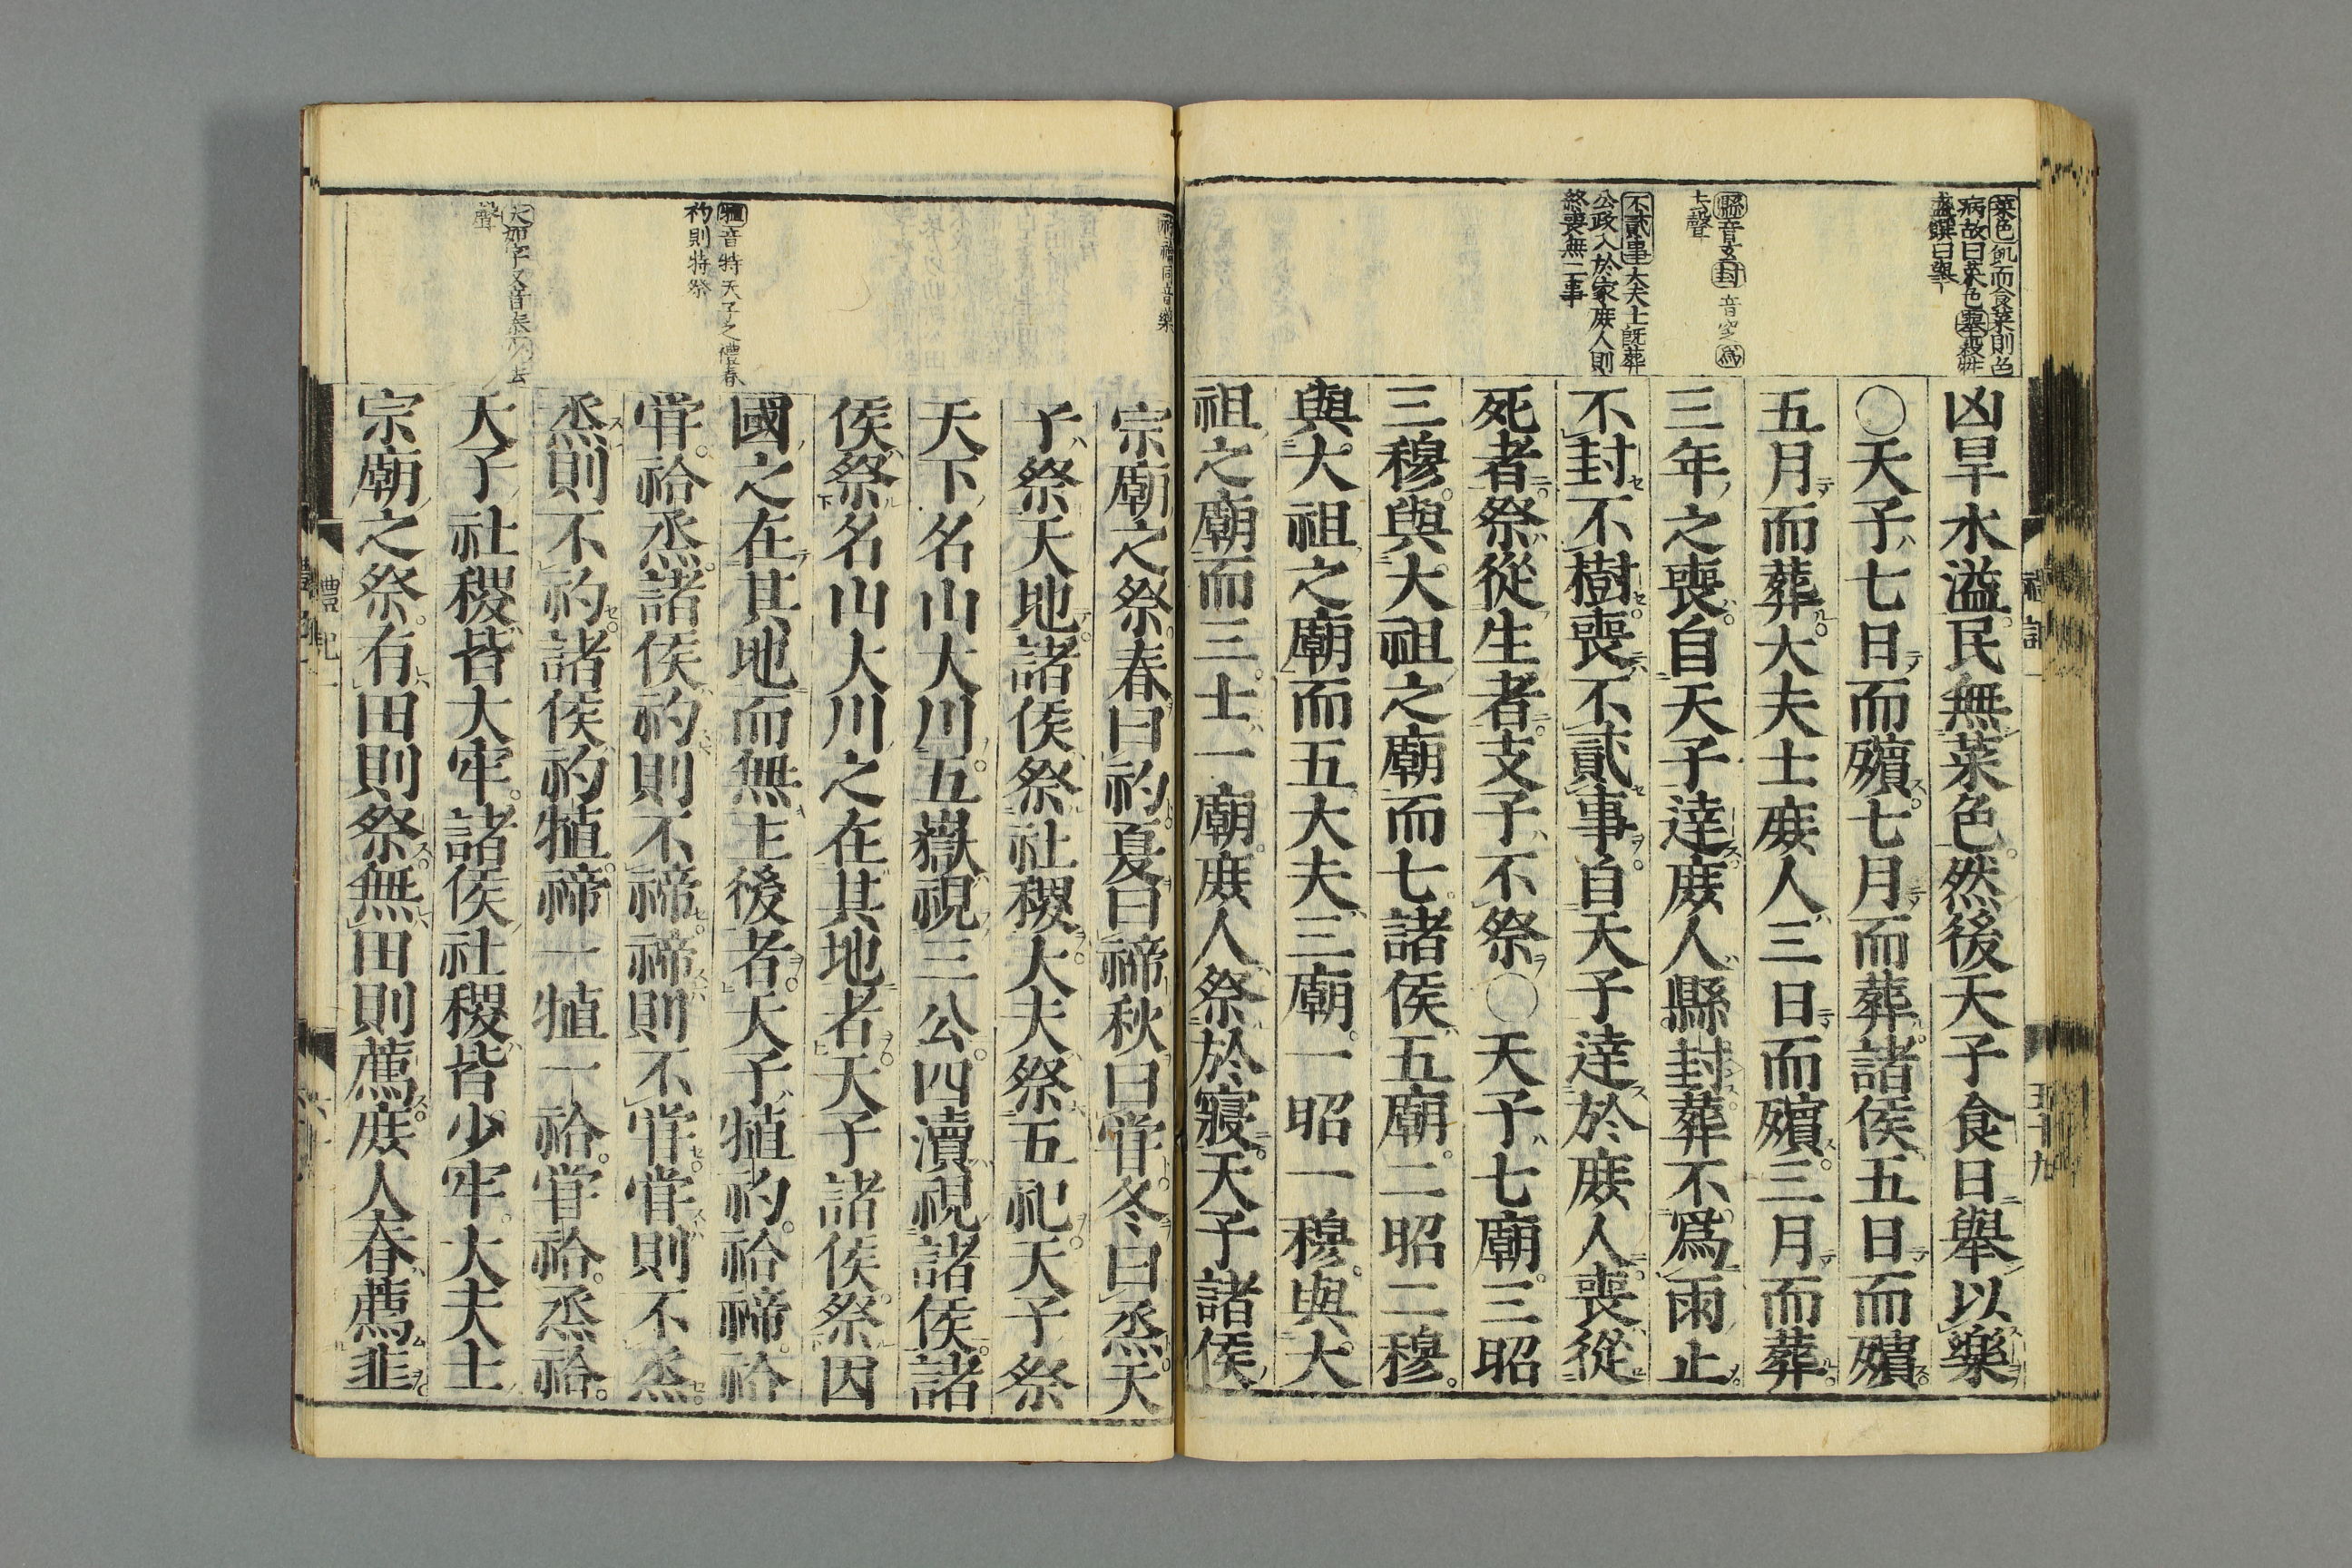 菜色飢而食菜則色
病故曰菜色擧殺牲
盛饌曰擧
縣音玄封音窆爲
去聲
不貳事大夫士既葬
公政入於家庻人則
終喪無二事
凶旱水溢民無菜色然後天子食日舉以樂
○天子七日而殯七月而葬諸侯五日而殯
五月而葬大夫士庻人三日而殯三月而葬
三年之喪自天子達庻人縣封葬不爲雨止
不封不樹喪不貳事自天子達於庻人喪從
死者祭從生者支子不祭○天子七廟三昭
三穆與大祖之廟而七諸侯五廟二昭二穆
與大祖之廟而五大夫三廟一昭一穆與大
祖之廟而三士一廟庻人祭於寢天子諸侯
礿禴同音樂
犆音特天子之禮春
礿則特祭
大如字又音泰少去
聲
宗廟之祭春曰礿夏曰禘秋曰甞冬曰烝天
子祭天地諸侯祭社稷大夫祭五祀天子祭
天下名山大川五嶽視三公四瀆視諸侯諸
侯祭名山大川之在其地者天子諸侯祭因
國之在其地而無主後者天子犆礿祫禘祫
甞祫烝諸侯礿則不禘禘則不甞甞則不烝
烝則不礿諸侯礿犆禘一犆一祫甞祫烝祫
天子社稷皆大牢諸侯社稷皆少牢大夫士
宗廟之祭有田則祭無田則薦庻人春薦韭
禮記
五十九